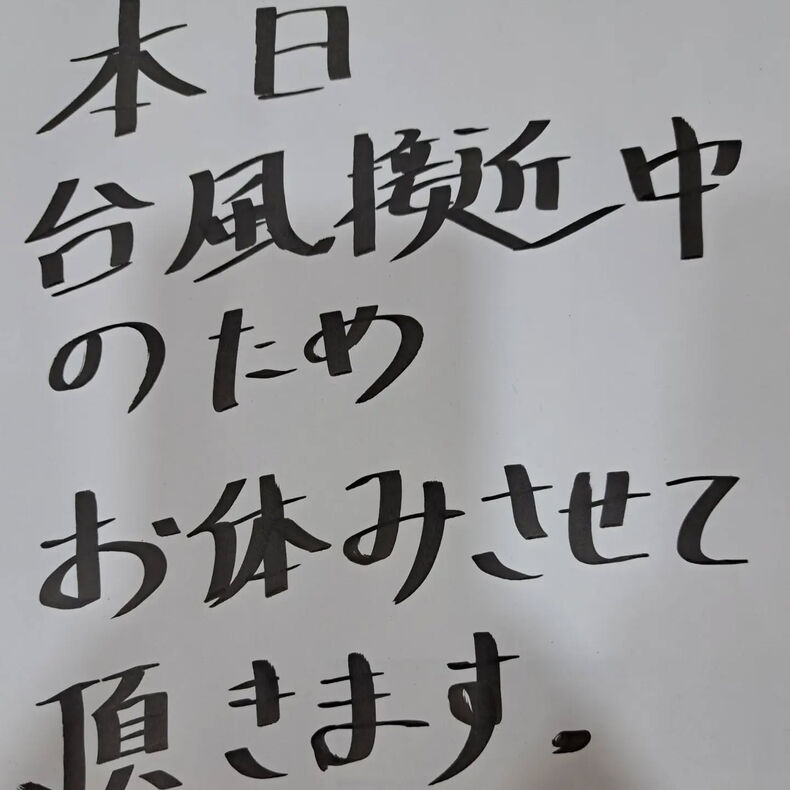 本日
台風接近中
のため
お休みさせて
頂きます.